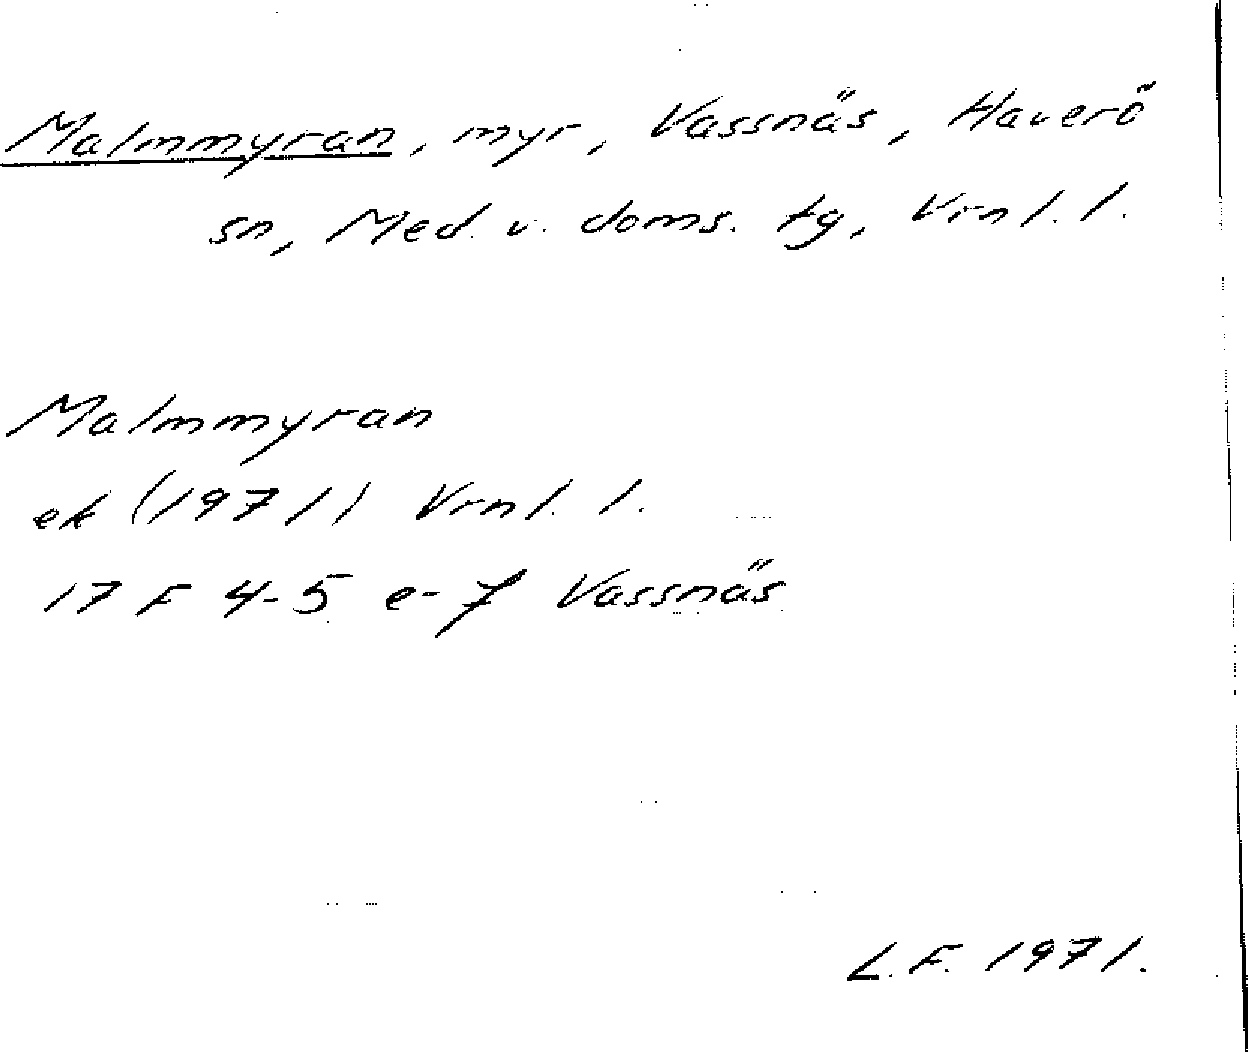 Malmmyran, myr, Vassnäs, Haverö
sn, Med. v. doms. tg, Vrnl. l.
Malmmyran
ek (1971) Vrnl. l.
17 F 4-5 e-f Vassnäs
L.F. 1971.